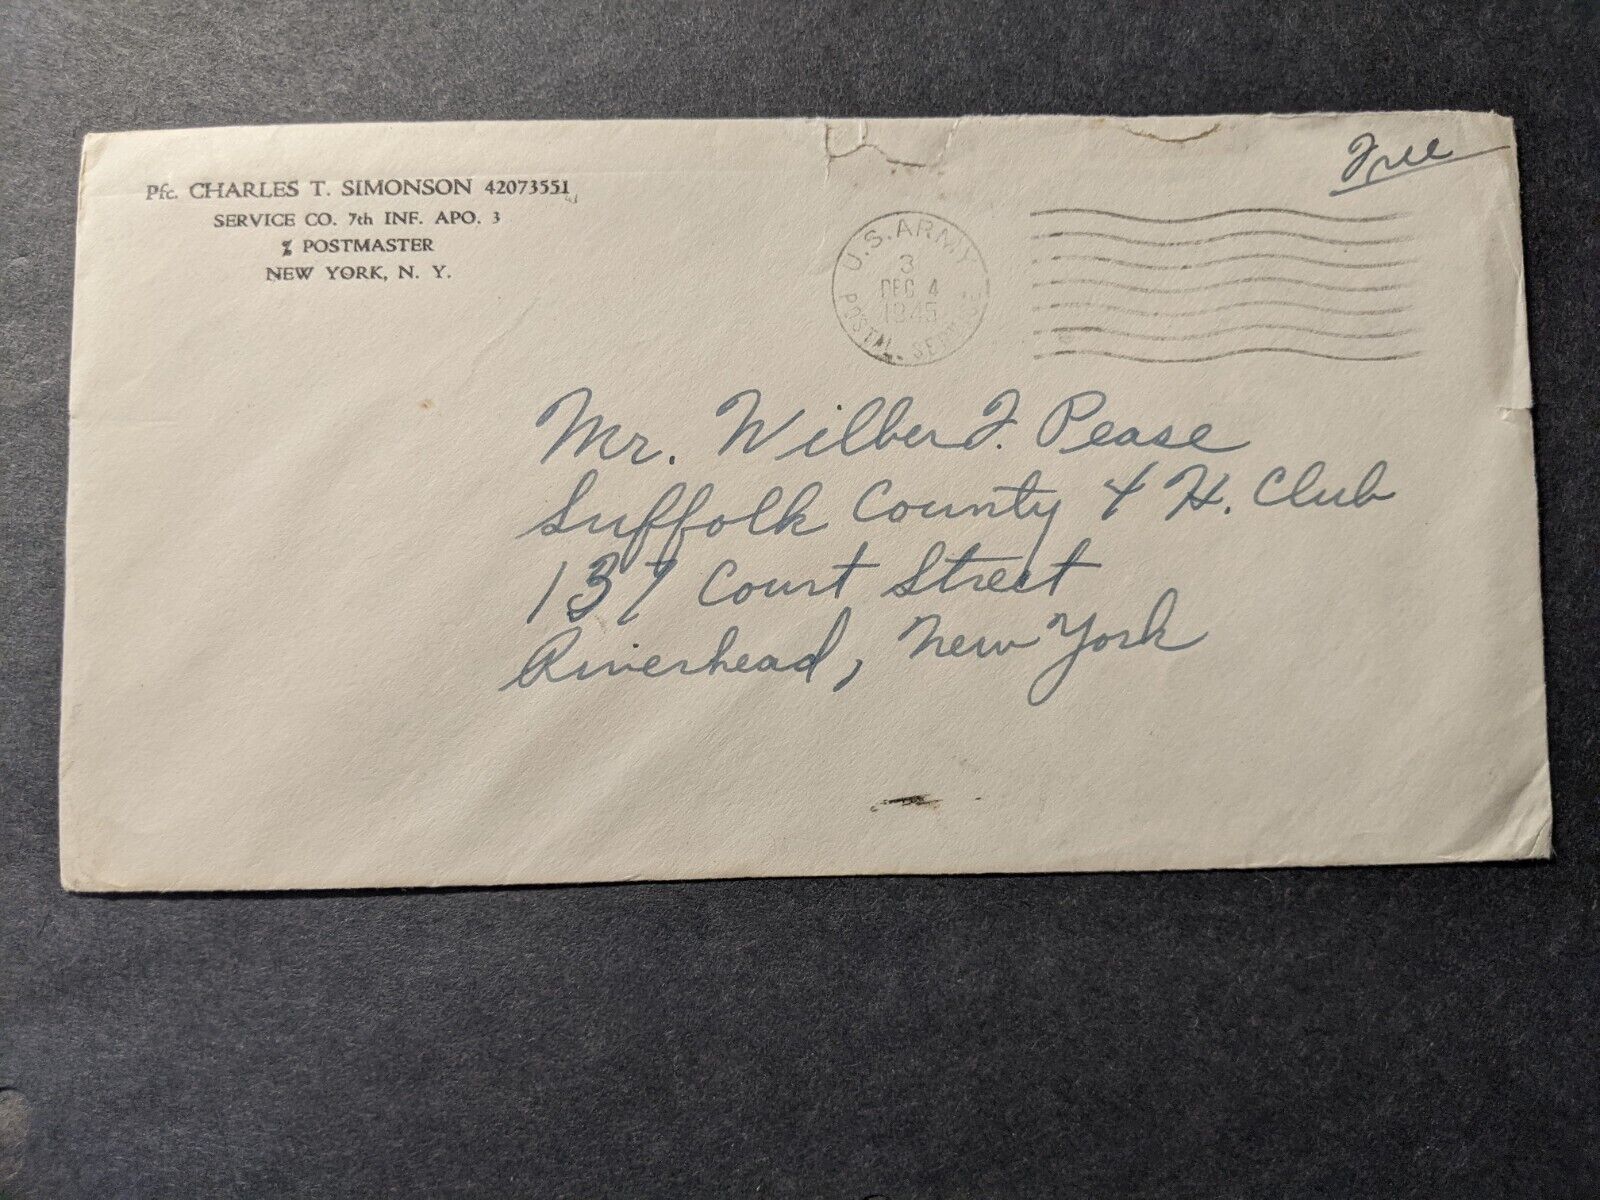 Pfc. CHARLES T. SIMONSON 42073551
SERVICE CO. 7th INF. APO. 3
% POSTMASTER
NEW YORK, N. Y.
Free
U.S. ARMY
3
DEC 4
1945
POSTAL SERVICE
Mr. Wilber F. Pease
Suffolk County 4 H. Club
137 Court Street
Riverhead, New York